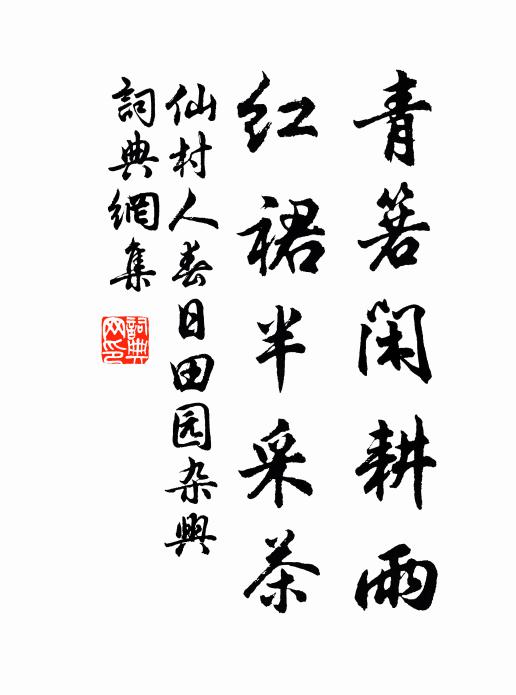 青箬閑耕雨
紅裙半采茶
仙村人春日田园杂興
詞典網集
詞典网印